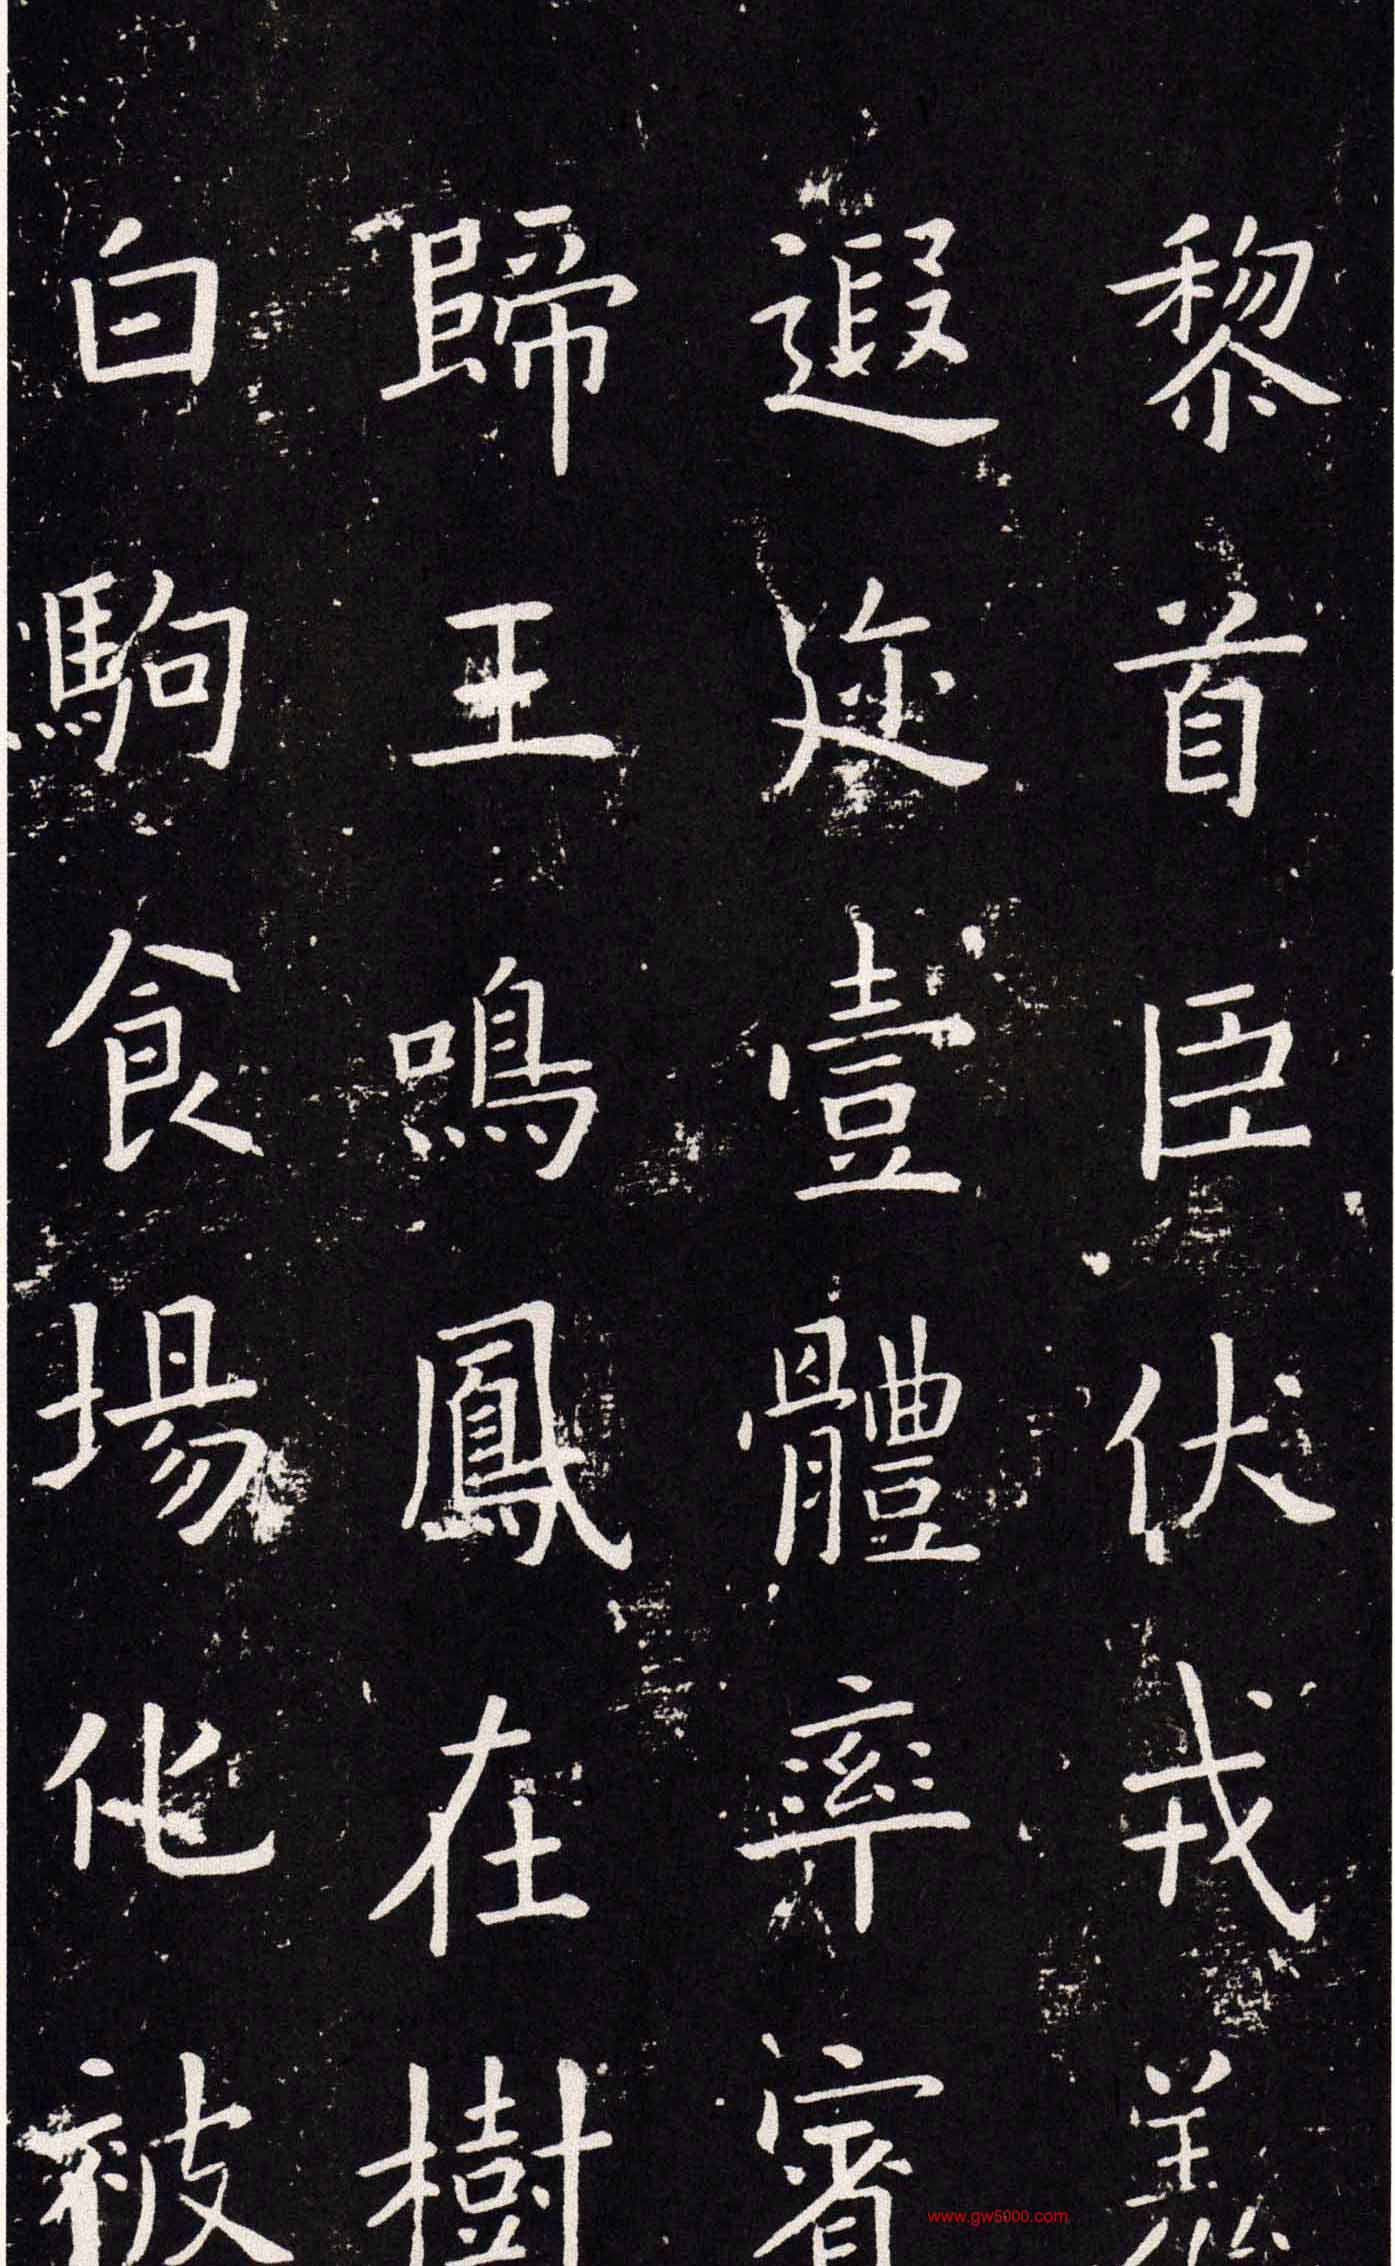 黎首臣伏戎羌
遐迩壹體率賓
歸王鳴鳳在樹
白駒食場化被
www.gw5000.com